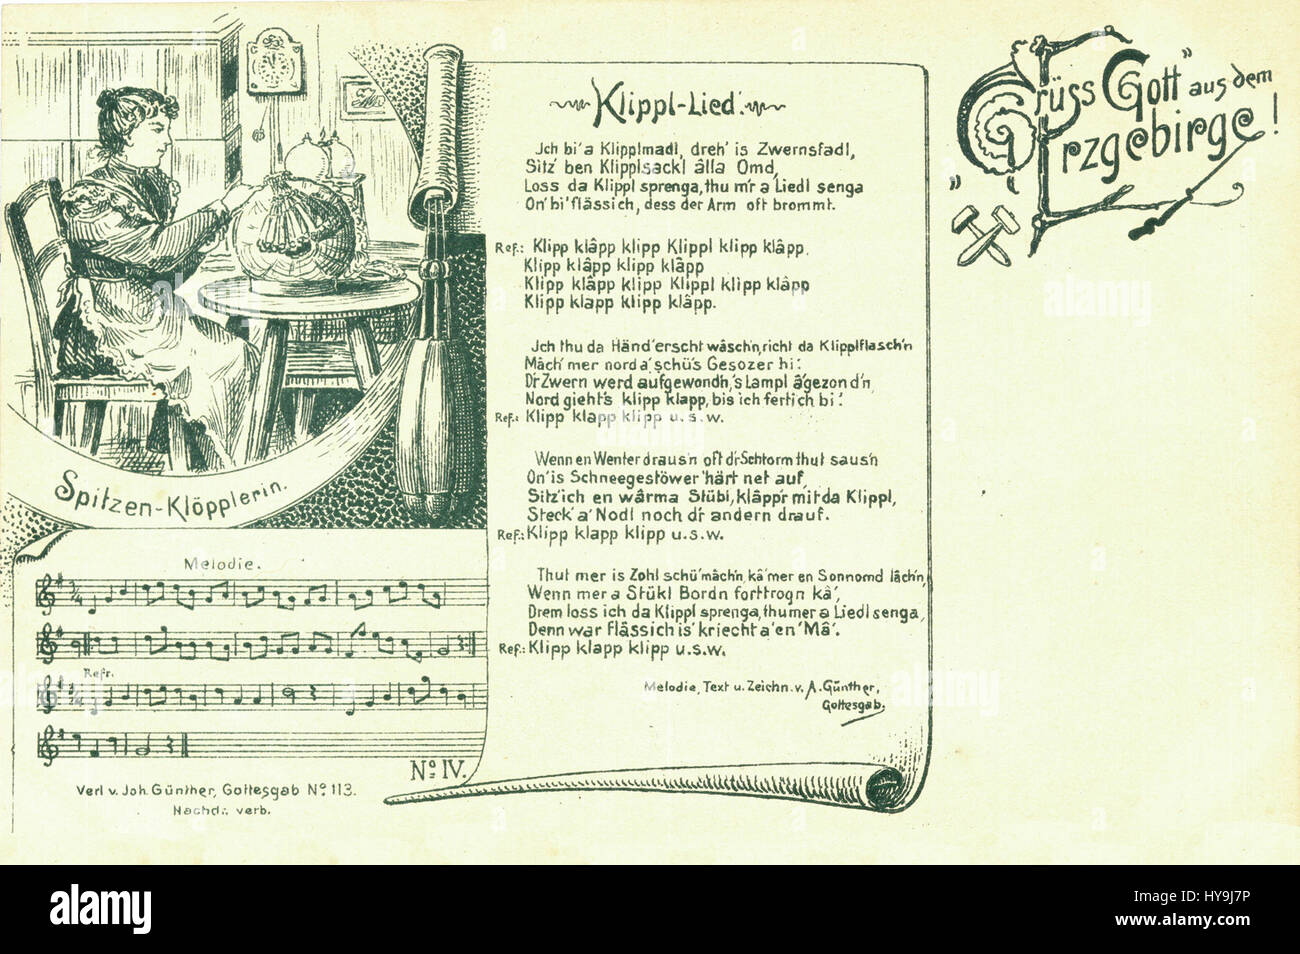 Klippl-Lied.
Jch bi'a Klipplmadl, dreh' is Zwernsfadl,
Sitz' ben Klipplsackl âlla Omd,
Loss da Klippl sprenga, thu m'r a Liedl senga
On' bi' flässich, dess der Arm oft brommt.
Ref.: Klipp klâpp klipp Klippl klipp klâpp,
Klipp klâpp klipp klâpp
Klipp klâpp klipp Klippl klipp klâpp
Klipp klapp klipp klâpp.
Jch thu da Händ' erscht wâsch'n, richt da Klipplflasch'n
Mâch' mer nord a' schü's Gesozer hi'.
D'r Zwern werd aufgewondn, 's Lampl â'gezond'n,
Nord gieht's klipp klapp, bis ich fertich bi'.
Ref.: Klipp klapp klipp u.s.w.
Wenn en Wenter draus'n oft d'r Schtorm thut saus'n
On' is Schneegestöwer 'härt net auf,
Sitz' ich en wârma Stübl, klâpp'r mit da Klippl,
Steck' a' Nodl noch d'r andern drauf.
Ref.: Klipp klapp klipp u.s.w.
Thut mer is Zohl schü' mâch'n, kâ' mer en Sonnomd lâch'n,
Wenn mer a Stükl Bordn forttrogn kâ',
Drem loss ich da Klippl sprenga, thu mer a Liedl senga,
Denn war flâssich is' kriecht a' en' Mâ'.
Ref.: Klipp klapp klipp u.s.w.
Melodie, Text u. Zeichn. v. A. Günther,
Gottesgab.
Spitzen-Klöpplerin.
Melodie.
3/4
Refr.
3/4
No IV.
Verl v. Joh. Günther, Gottesgab No 113.
Nachd. verb.
"Grüss Gott" aus dem
Erzgebirge!
alamy
alamy
alamy
alamy
Image ID: HY9J7P
www.alamy.com